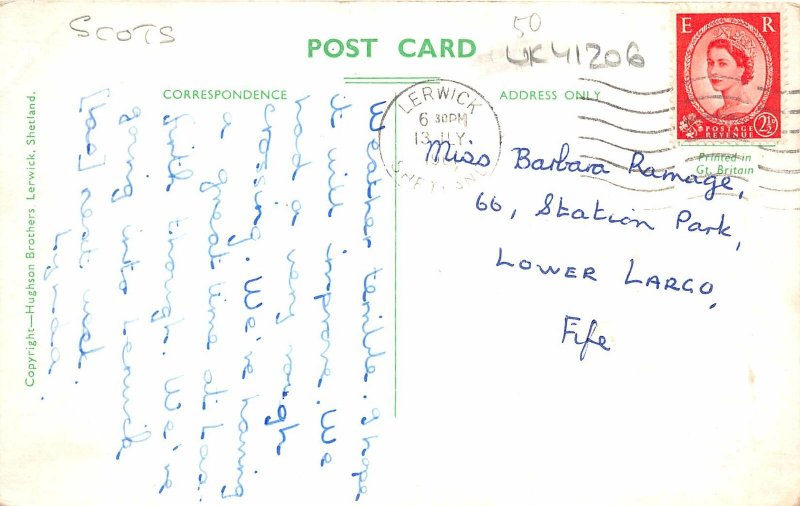 SCOTS
50
UK41206
POST CARD
CORRESPONDENCE
ADDRESS ONLY
E R
POSTAGE
REVENUE
2½D
Printed in
Gt. Britain
LERWICK
6 30PM
13 JLY
SHETLAND
Miss Barbara Ramage,
66, Station Park,
LOWER LARGO,
Fife
Weather terrible. I hope
it will improve. We
had a very rough
crossing. We're having
a great time at
little though. We're
going into Lerwick
next week.
Lynda.
Copyright—Hughson Brothers, Lerwick, Shetland.